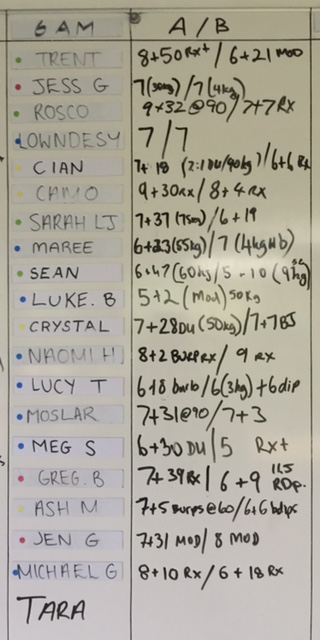 6AM A/B
TRENT 8+50 RX+ / 6+21 MOD
JESS G 7(30kg)/7(4kg)
ROSCO 9+32@90/7+7 RX
LOWNDESY 7/7
CIAN 7+18 (2:1 DU/90kg)/6+6 RX
CAMO 9+30RX/8+4 RX
SARAH LJ 7+37(75m)/6+19
MAREE 6+23(55kg)/7(4kg Wb)
SEAN 6+47(60kg/5-10(9kg)
LUKE. B 5+2 (Mod) 50kg
CRYSTAL 7+28DU(50kg)/7+7BJ
NAOMI H 8+2 BURP RX/ 9 RX
LUCY T 6+8 burb/6(3kg)+6dip
MOSLAR 7+31@90/7+3
MEG S 6+30 DU/5 RX+
GREG. B 7+39RX/6+9 115 RDP.
ASH M 7+5 Burps@60/6+6 bdips
JEN G 7+31 MOD/8 MOD
MICHAEL G 8+10 RX/6+18 RX
TARA